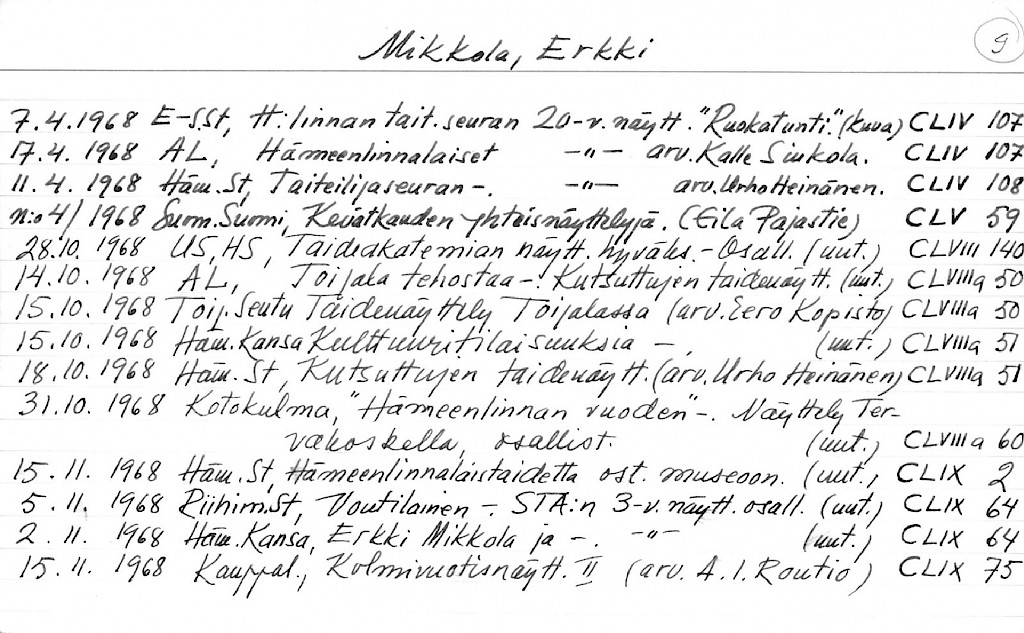 Mikkola, Erkki
9
7.4.1968 E-S.St, H:linnan tait.seuran 20-v.näytt. "Ruokatunti". (kuva) CLIV 107
17.4. 1968 AL, Hämeenlinnalaiset -"- arv. Kalle Sinkola. CLIV 107
11.4. 1968 Häm.St, Taiteilijaseuran-. -"- arv. Urho Heinänen. CLIV 108
n:o 4/1968 Suom.Suomi, Kevätkauden yhteisnäyttelyjä. (Eila Pajastie) CLV 59
28.10. 1968 US, HS, Taideakatemian näytt. hyväks.- Osall. (uut.) CLVIII 140
14.10. 1968 AL, Toijala tehostaa-: Kutsuttujen taidenäytt. (uut.) CLVIIIa 50
15.10. 1968 Toij.Seutu Taidenäyttely Toijalassa (arv. Eero Kopisto) CLVIIIa 50
15.10. 1968 Häm.Kansa Kulttuuritilaisuuksia -. (uut.) CLVIIIa 51
18.10. 1968 Häm.St, Kutsuttujen taidenäytt. (arv. Urho Heinänen) CLVIIIa 51
31.10. 1968 Kotokulma, "Hämeenlinnan vuoden"-. Näyttely Ter-
vakoskella, osallist. (uut.) CLVIIIa 60
15.11. 1968 Häm.St, Hämeenlinnalaistaidetta ost. museoon. (uut., CLIX 2
5.11. 1968 Riihim.St, Voutilainen -. STA:n 3-v.näytt. osall. (uut.) CLIX 64
2.11. 1968 Häm.Kansa, Erkki Mikkola ja -. -"- (uut.) CLIX 64
15.11. 1968 Kauppal., Kolmivuotisnäytt. II (arv. A.I. Routio) CLIX 75